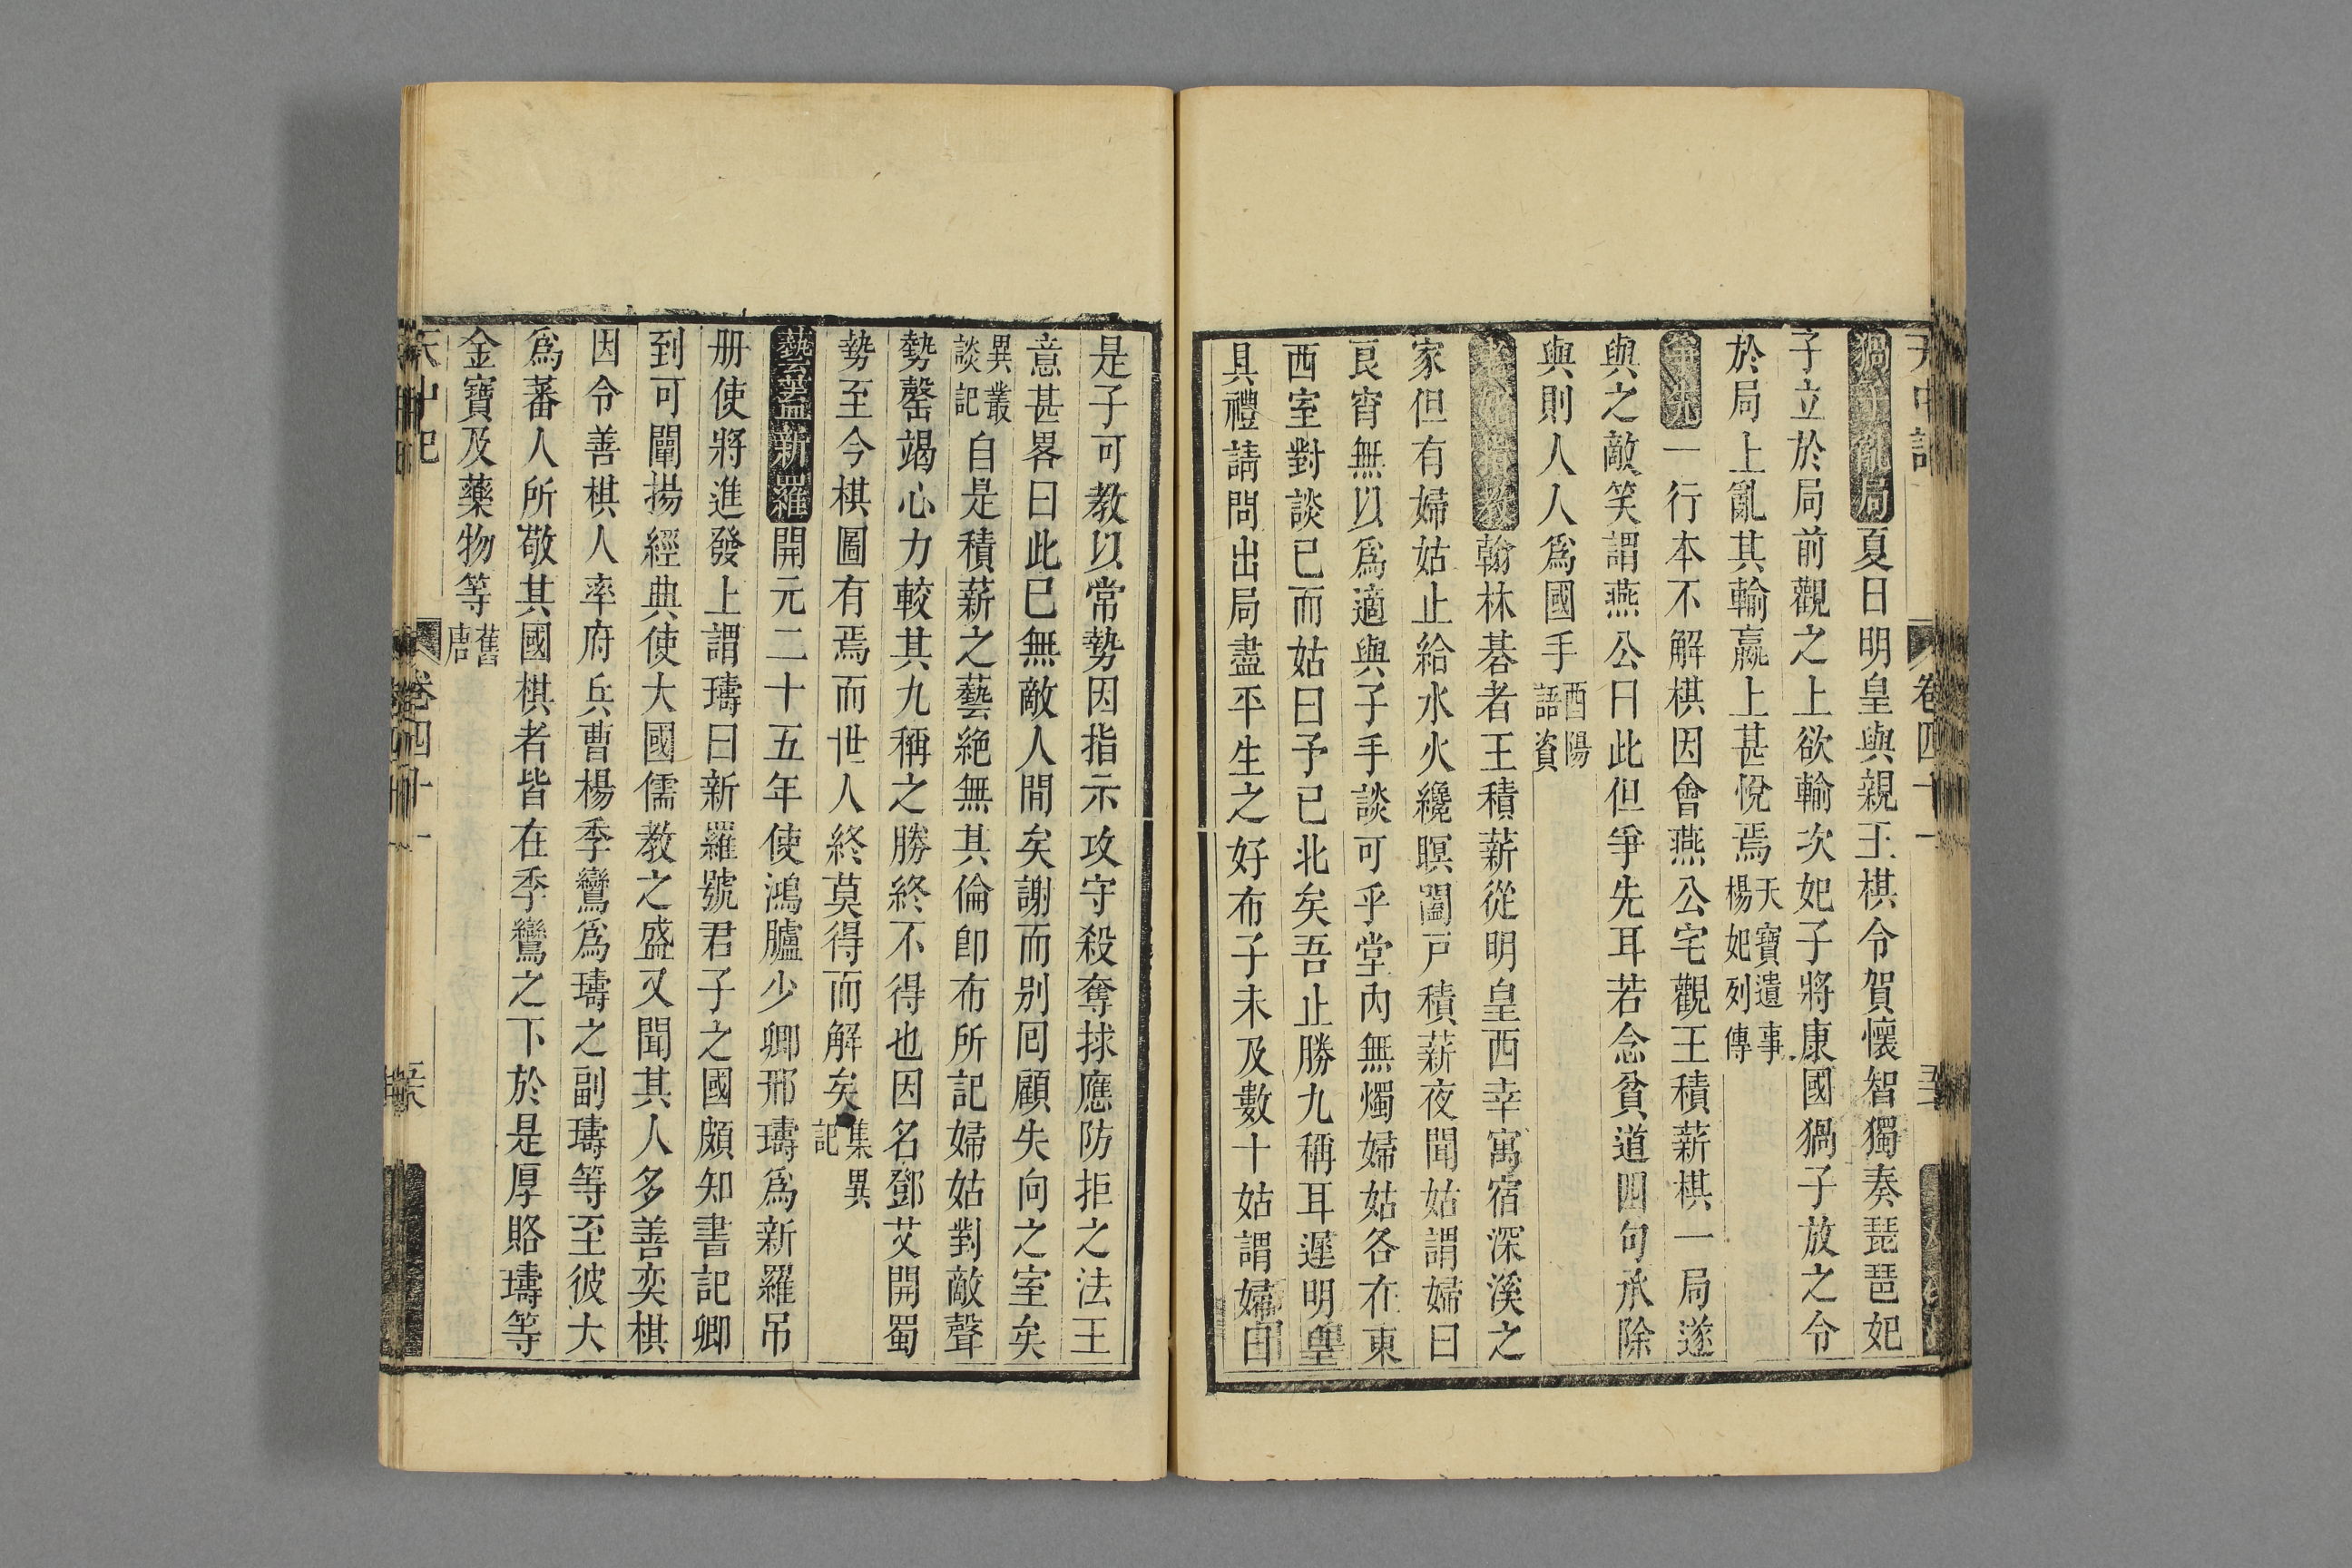 天中記 卷四十一
猧子亂局夏日明皇與親王棋令賀懷智獨奏琵琶妃
子立於局前觀之上欲輸次妃子將康國猧子放之令
於局上亂其輸嬴上甚悅焉天寶遺事楊妃列傳
爭先一行本不解棋因會燕公宅觀王積薪棋一局遂
與之敵笑謂燕公曰此但爭先耳若念貧道四句承除
與則人人爲國手酉陽語資
翰林碁者王積薪從明皇西幸寓宿深溪之
家但有婦姑止給水火纔暝闔戸積薪夜聞姑謂婦曰
良宵無以爲適與子手談可乎堂内無燭婦姑各在東
西室對談已而姑曰予已北矣吾止勝九稱耳遲明皇
具禮請問出局盡平生之好布子未及數十姑謂婦曰
是子可教以常勢因指示攻守殺奪捄應防拒之法王
意甚畧曰此已無敵人間矣謝而别囘顧失向之室矣
異叢談記自是積薪之藝絶無其倫卽布所記婦姑對敵聲
勢罄竭心力較其九稱之勝終不得也因名鄧艾開蜀
勢至今棋圖有焉而世人終莫得而解矣集異記
藝葢新羅開元二十五年使鴻臚少卿邢璹爲新羅吊
册使將進發上謂璹曰新羅號君子之國頗知書記卿
到可闡揚經典使大國儒教之盛又聞其人多善奕棋
因令善棋人率府兵曹楊季鸞爲璹之副璹等至彼大
爲蕃人所敬其國棋者皆在季鸞之下於是厚賂璹等
金寶及藥物等舊唐
天中記 卷四十一